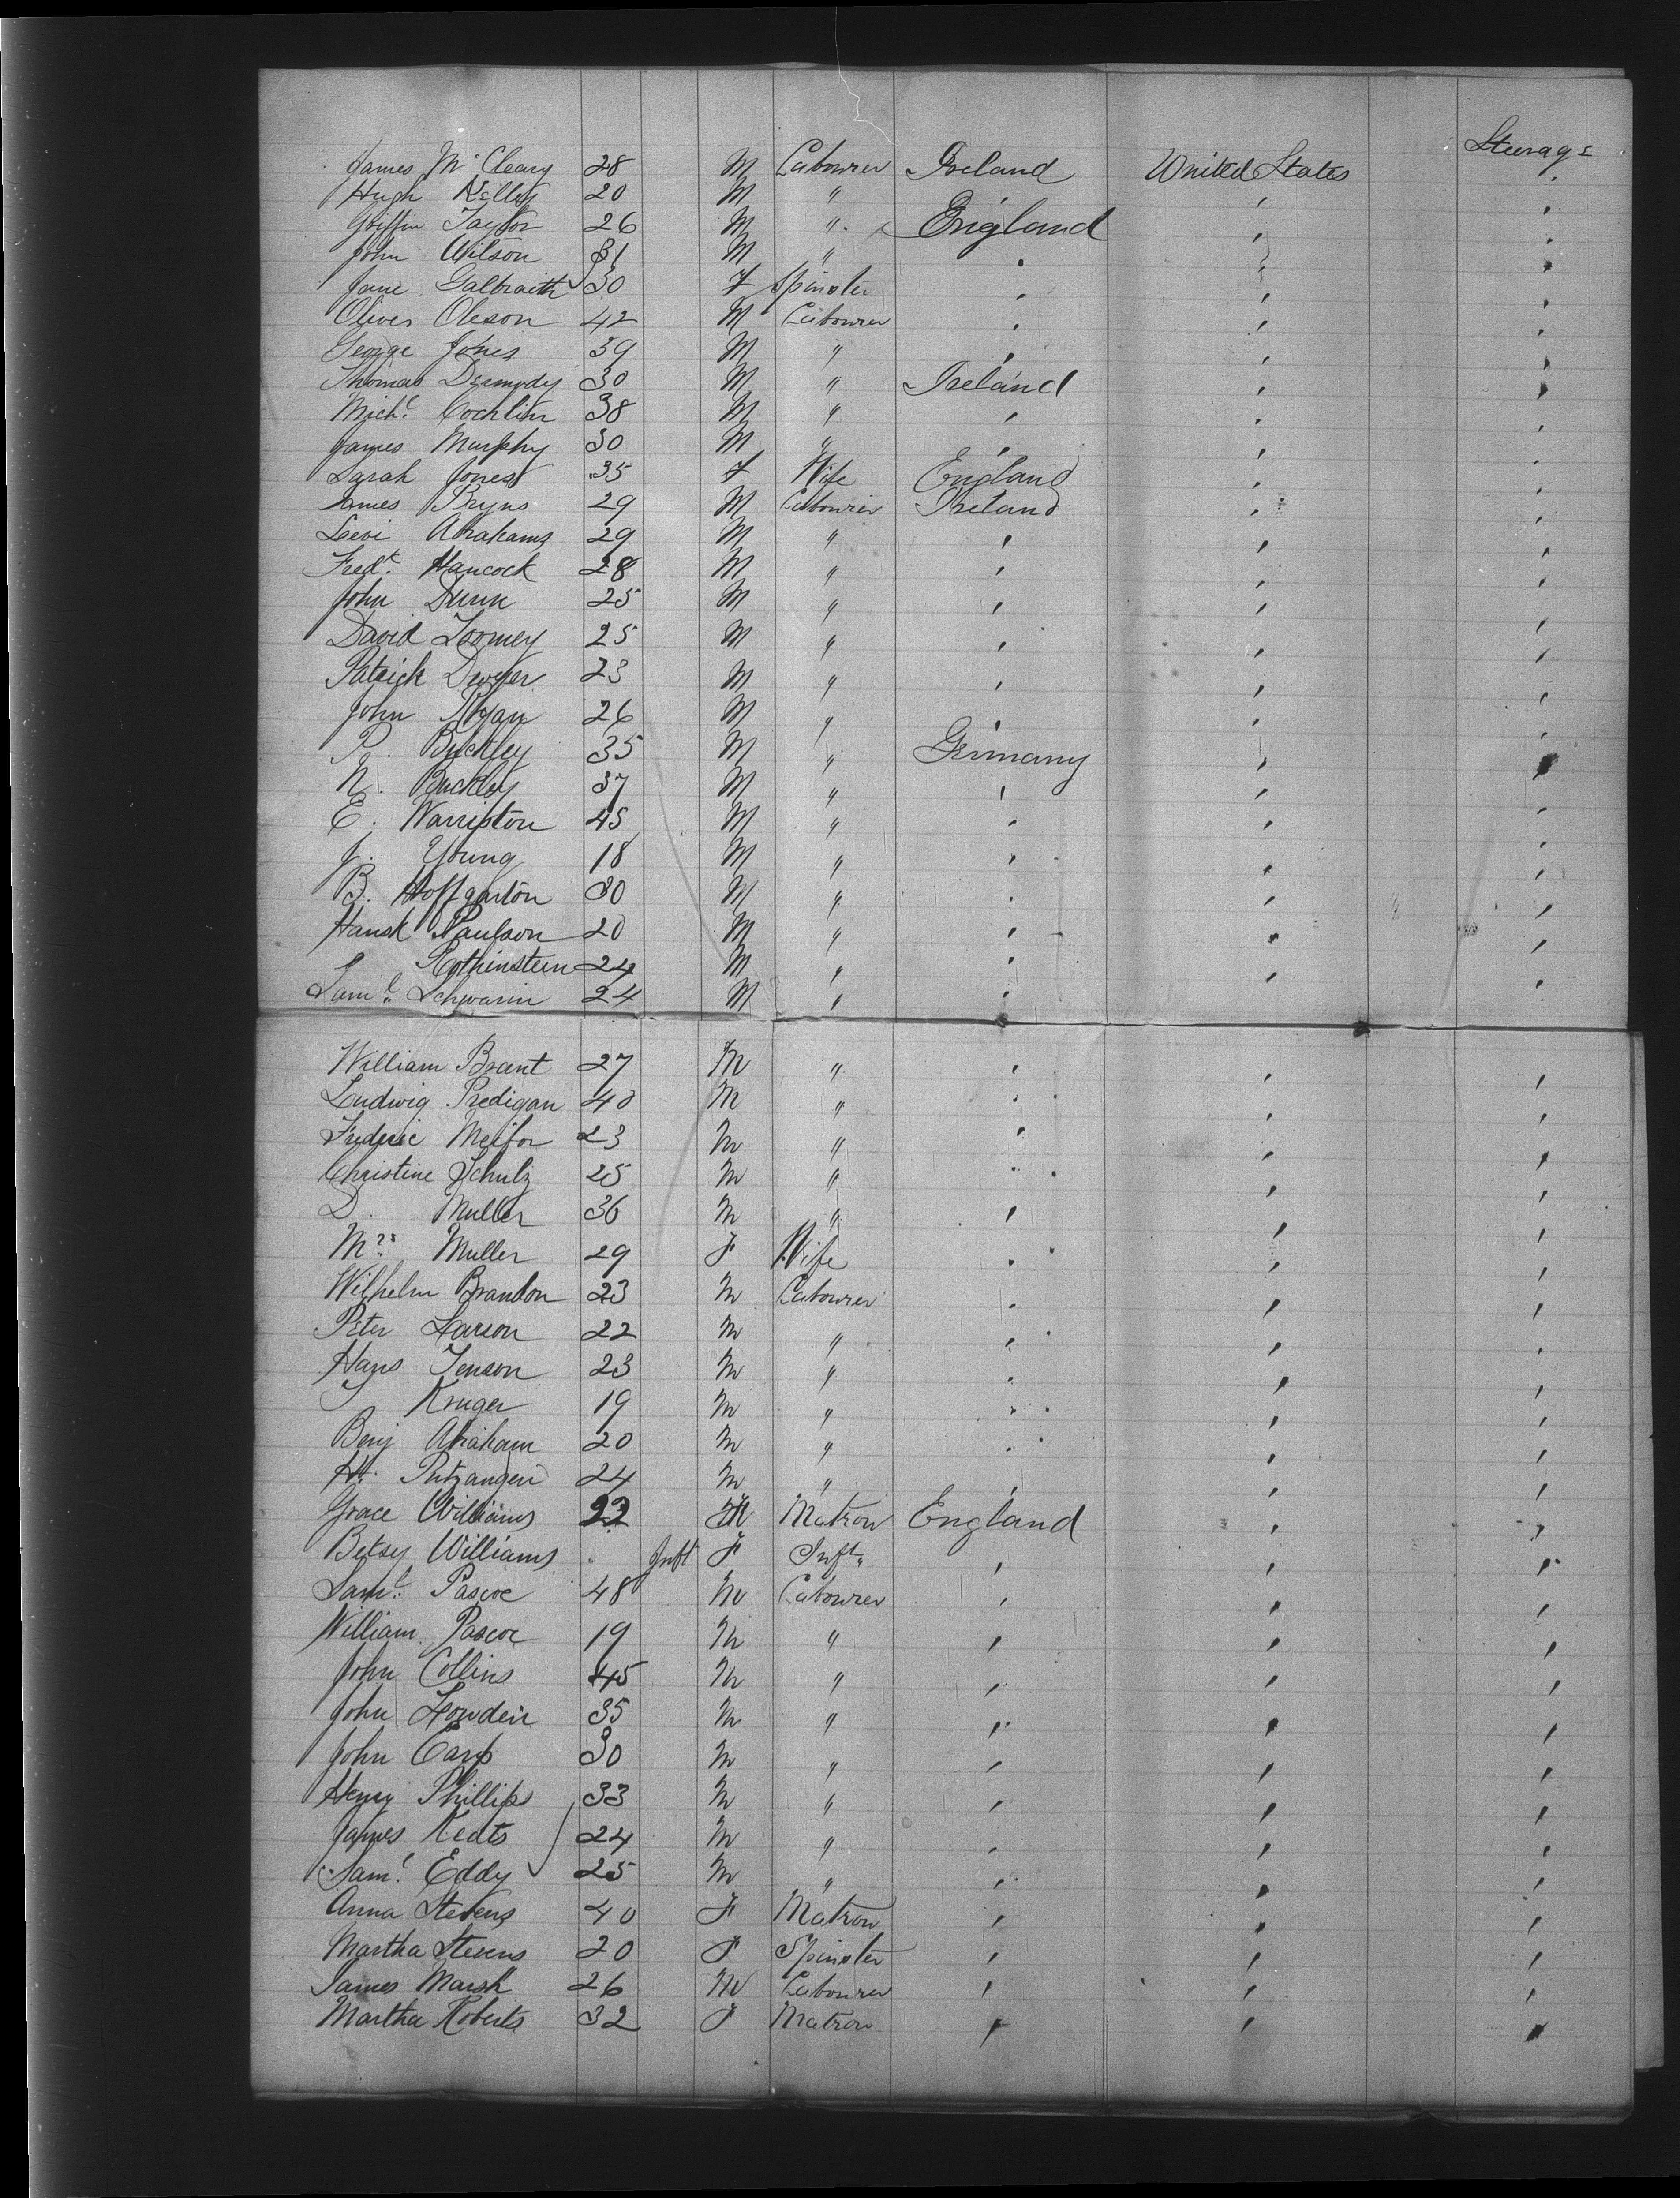 Steerage
James McCleary 28 M Labourer Ireland United States
Hugh Kelly 20 M " ' '
Griffin Taylor 26 M " England ' '
John Wilson 31 M " ' ' '
Jane Galbraith 30 F Spinster ' ' '
Oliver Oleson 42 M Labourer ' ' '
George Jones 39 M " ' ' '
Thomas Dermody 30 M " Ireland ' '
Michl Cochlin 38 M " ' ' '
James Murphy 30 M " ' ' '
Sarah Jones 35 F Wife England ' '
James Bryns 29 M Labourer Ireland ' '
Levi Abrahams 29 M " ' ' '
Fredk Hancock 28 M " ' ' '
John Dunn 25 M " ' ' '
David Toomey 25 M " ' ' '
Patrick Dwyer 23 M " ' ' '
John Ryan 26 M " ' ' '
P. Buckley 35 M " Germany ' '
N. Buckley 37 M " ' ' '
E. Warripton 45 M " ' ' '
J. Young 18 M " ' ' '
B. Hoffgarton 30 M " ' ' '
Hansk Paulson 20 M " ' ' '
Rothinstein 24 M " ' ' '
Saml Schwarin 24 M " ' ' '
William Brant 27 M " ' ' '
Ludwig Predigan 40 M " ' ' '
Frederic Meifor 23 M " ' ' '
Christine Schulz 25 M " ' ' '
D. Muller 36 M " ' ' '
Mrs Muller 29 F Wife ' ' '
Wilhelm Brandon 23 M Labourer ' ' '
Peter Larson 22 M " ' ' '
Hans Jenson 23 M " ' ' '
J Kruger 19 M " ' ' '
Benj Abraham 20 M " ' ' '
H. Putzangen 24 M " ' ' '
Grace Williams 22 F Matron England ' '
Betsy Williams Inft F Inft " ' ' '
Saml Pascoe 48 M Labourer ' ' '
William Pascoe 19 M " ' ' '
John Collins 45 M " ' ' '
John Lowdein 35 M " ' ' '
John Earp 30 M " ' ' '
Henry Phillips 33 M " ' ' '
James Keats 24 M " ' ' '
Saml Eddy 25 M " ' ' '
Anna Stevens 40 F Matron ' ' '
Martha Stevens 20 F Spinster ' ' '
James Marsh 26 M Labourer ' ' '
Martha Roberts 32 F Matron ' ' '